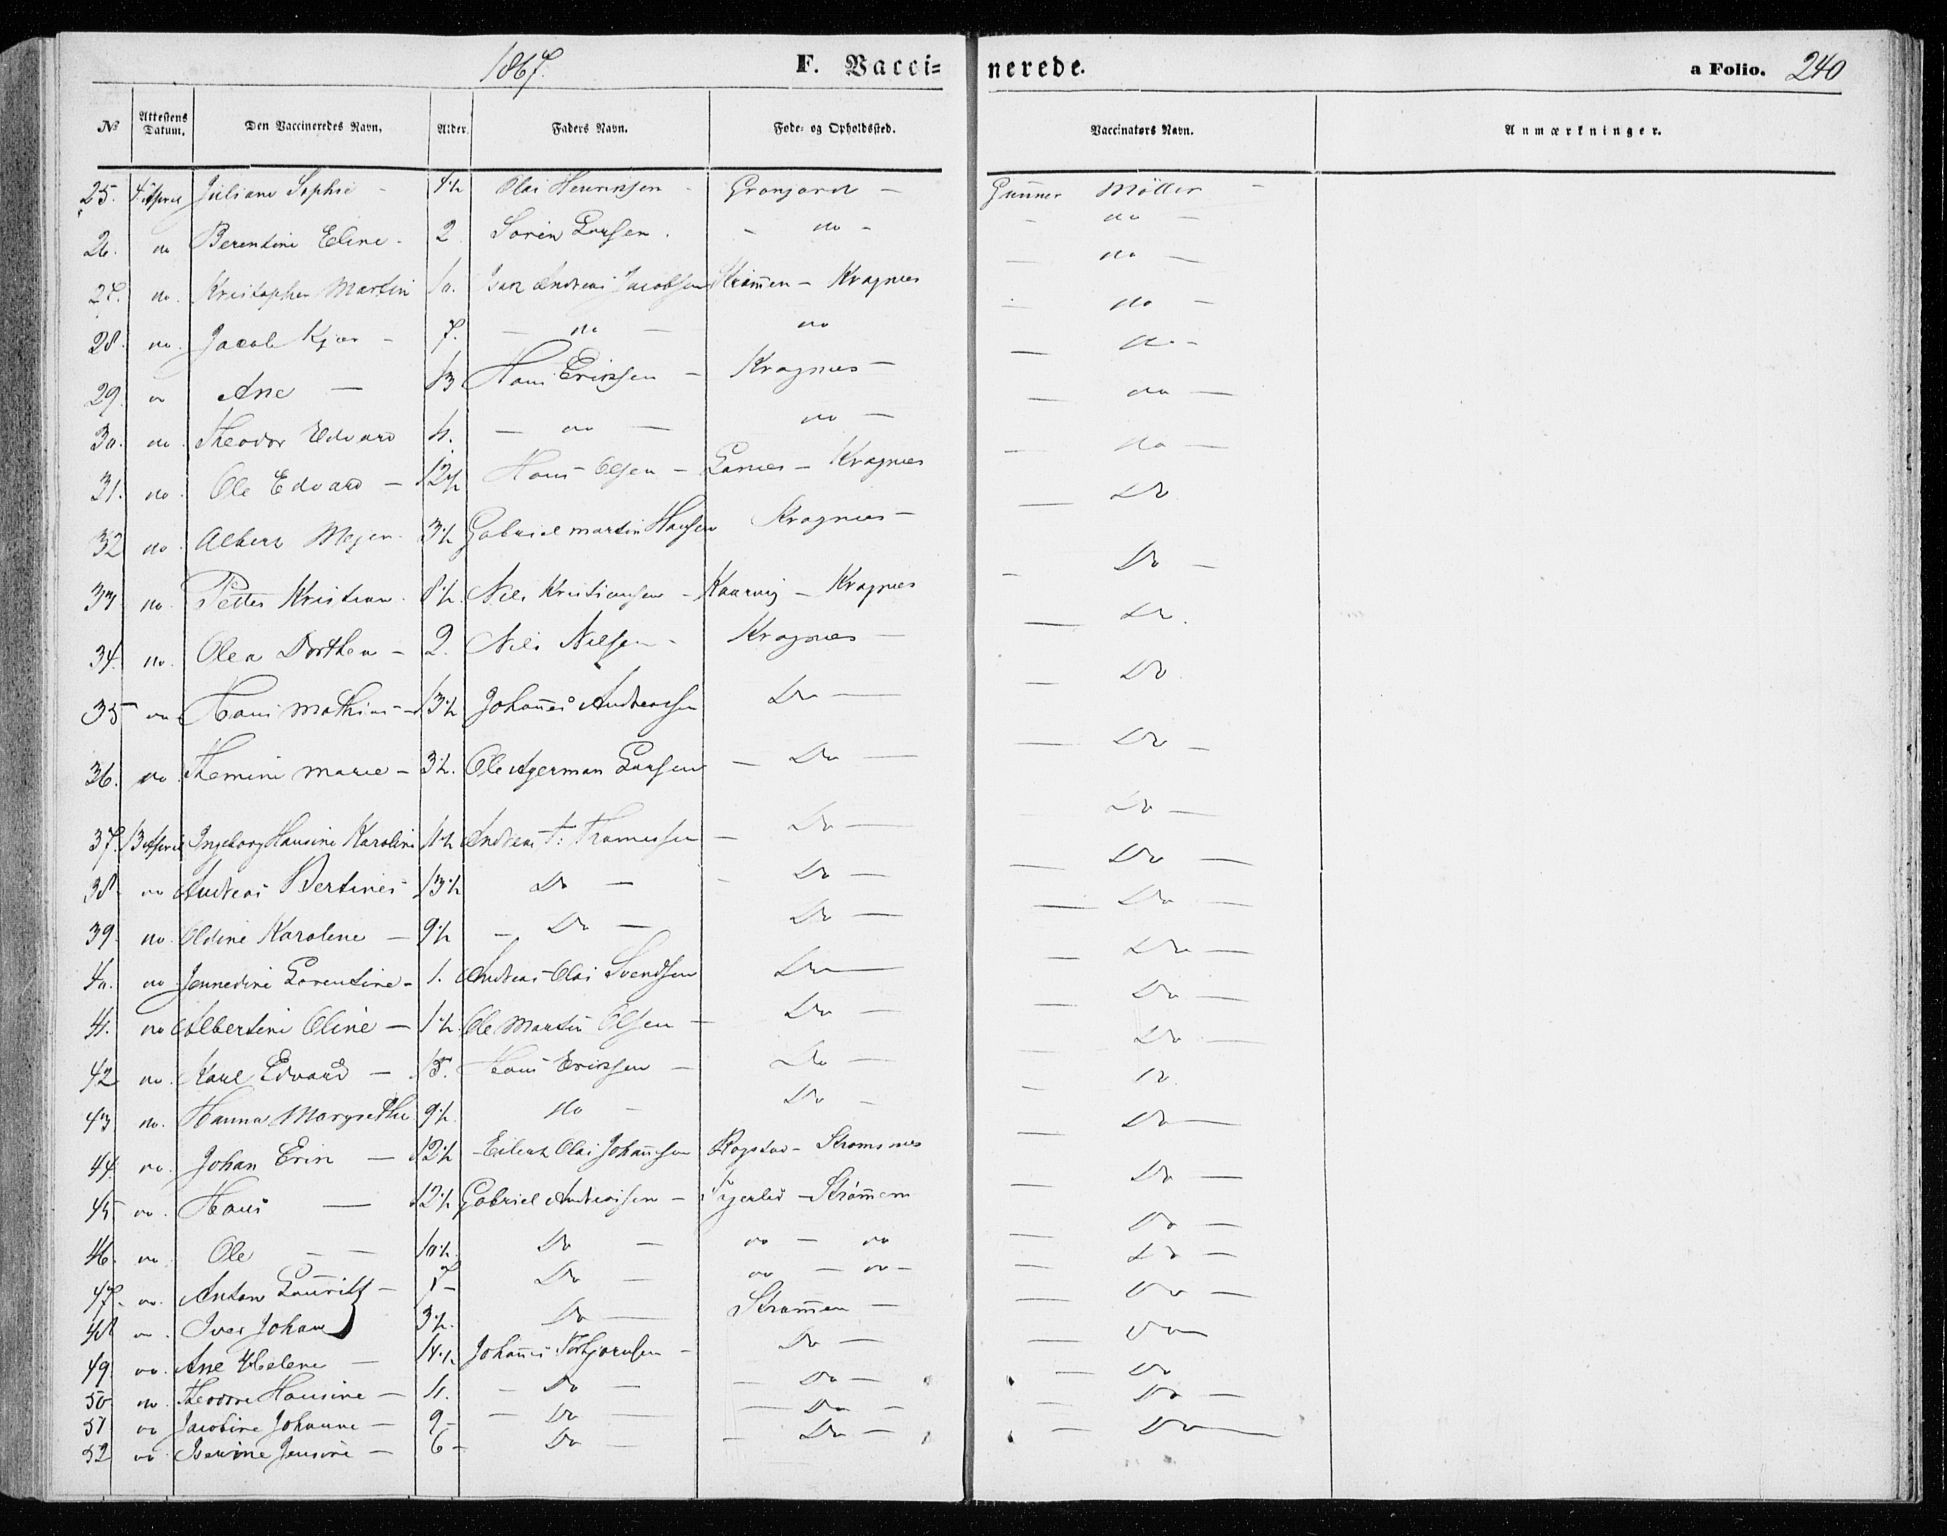 1867.
F. Vaccinerede.
a Folio. 240
No Attestens Datum. Den Vaccineredes Navn. Alder. Faders Navn. Føde- og Opholdssted. Vaccinators Navn. Anmærkninger.
25. 4 April Juliane Sophie - 4 1/2 Olai Henriksen - Grønjord - Gunner Möller -
26. do Berentine Eline - 2 Sören Larsen. - do - - do -
27. do. Kristopher Martin 10. Andreas Jacobsen Strömen - Kragnes - do -
28. do. Jacob - 7. - do - do - do -
29. do Ane - 13 Hans Eriksen - Kragnes - - do -
30. do. Theodor Edvard 11. - do - do - - do -
31. do. Ole Edvard - 12 1/2 Hans Olsen - - Kragnes - do -
32 do. Albert Meyer. 3 1/2 Gabriel Martin Hansen Kragnes - - Do
33 do. Petter Kristian. 8 1/2. Nils Kristiansen - Kaarvig - Kragnes - Do -
34. do. Olea Dorthea - 2. Nils Nilsen - Kragnes - - Do.
35 do Hans Mathias - 13 1/2 Johannes Andreassen Do - - Do.
36. do Hemine Marie - 3 1/2. Ole Agerman Larsen - Do - - Do -
37. 13 April Ingeborg Hansine Karoline 11 1/2 Andreas - Do - - Do -
38 do Andreas Bertines 13 1/2 Do - - Do - - Do -
39. do. Oldine Karoline - 9 1/2 - Do - Do - - Do -
40. do Jennedine Lorentine - 1. Andreas Olai Svendsen Do - - Do -
41. do Albertine Oline - 1 1/2. Ole Martin Olsen - Do - - Do -
42 do. Karl Edvard - 15. Hans Eriksen - Do - - Do -
43 do. Hanna Margrethe 9 1/2 do - Do - - Do.
44. do. Johan Erik - 12 1/2 Eilert Olai Johansen Rogstad - Stromsnes - Do -
45 do. Hans - 12 1/2 Gabriel Andreassen - Fagerlid - Strömmen - Do -
46. do. Ole - - 10 1/2. Do - do - do - Do -
47. do. Anton Lauritz - 7 - Do - do - do - - Do -
48 do. Iver Johan 3 1/2. Do - Strömmen - - Do -
49. do. Ane Helene - 14 1/2 Johannes Torbjornsen - Do - - Do -
50 do. Theodore Hansine - 11. - Do - - Do - - Do
51 do Jacobine Johanne - 9 - - Do - - Do - - Do -
52 do Jensine - 6 - Do - - Do - - Do -